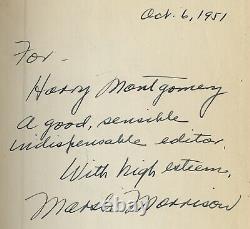 Oct. 6, 1951
For -
Harry Montgomery
A good, sensible
indispensable editor.
With high esteem,
Morrison